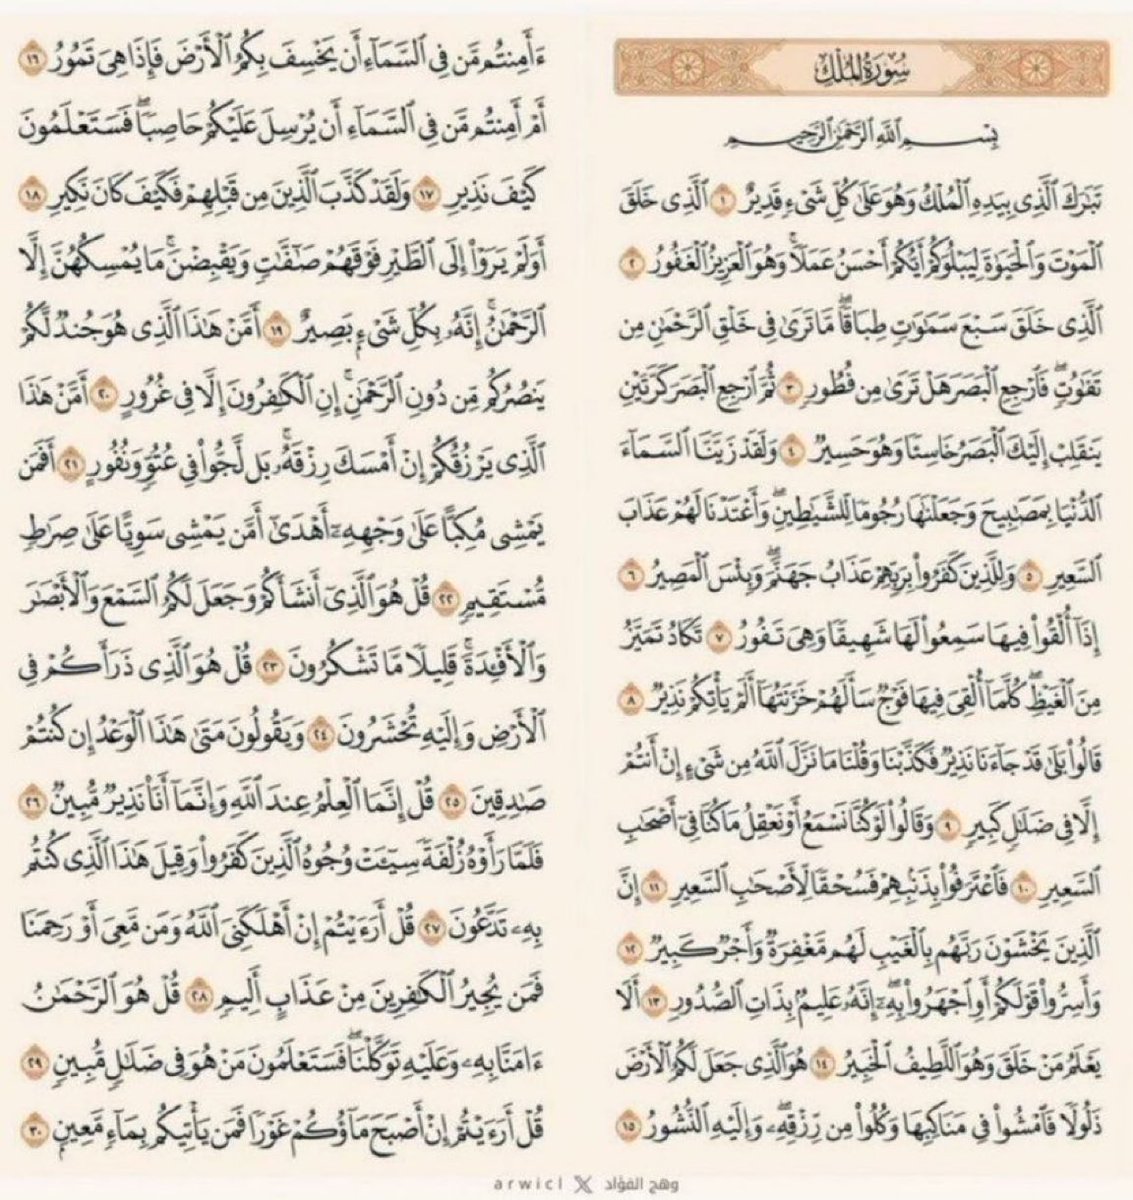 سُورَةُ الْمُلْكِ
بِسْمِ اللَّهِ الرَّحْمَٰنِ الرَّحِيمِ
تَبَٰرَكَ الَّذِي بِيَدِهِ الْمُلْكُ وَهُوَ عَلَىٰ كُلِّ شَيْءٍ قَدِيرٌ ١ الَّذِي خَلَقَ
الْمَوْتَ وَالْحَيَوٰةَ لِيَبْلُوَكُمْ أَيُّكُمْ أَحْسَنُ عَمَلًا ۚ وَهُوَ الْعَزِيزُ الْغَفُورُ ٢
الَّذِي خَلَقَ سَبْعَ سَمَٰوَٰتٍ طِبَاقًا ۖ مَّا تَرَىٰ فِي خَلْقِ الرَّحْمَٰنِ مِن
تَفَٰوُتٍ ۖ فَارْجِعِ الْبَصَرَ هَلْ تَرَىٰ مِن فُطُورٍ ٣ ثُمَّ ارْجِعِ الْبَصَرَ كَرَّتَيْنِ
يَنقَلِبْ إِلَيْكَ الْبَصَرُ خَاسِئًا وَهُوَ حَسِيرٌ ٤ وَلَقَدْ زَيَّنَّا السَّمَآءَ
الدُّنْيَا بِمَصَٰبِيحَ وَجَعَلْنَٰهَا رُجُومًا لِّلشَّيَٰطِينِ ۖ وَأَعْتَدْنَا لَهُمْ عَذَابَ
السَّعِيرِ ٥ وَلِلَّذِينَ كَفَرُوا بِرَبِّهِمْ عَذَابُ جَهَنَّمَ ۖ وَبِئْسَ الْمَصِيرُ ٦
إِذَآ أُلْقُوا فِيهَا سَمِعُوا لَهَا شَهِيقًا وَهِيَ تَفُورُ ٧ تَكَادُ تَمَيَّزُ
مِنَ الْغَيْظِ ۖ كُلَّمَآ أُلْقِيَ فِيهَا فَوْجٌ سَأَلَهُمْ خَزَنَتُهَآ أَلَمْ يَأْتِكُمْ نَذِيرٌ ٨
قَالُوا بَلَىٰ قَدْ جَآءَنَا نَذِيرٌ فَكَذَّبْنَا وَقُلْنَا مَا نَزَّلَ اللَّهُ مِن شَيْءٍ إِنْ أَنتُمْ
إِلَّا فِي ضَلَٰلٍ كَبِيرٍ ٩ وَقَالُوا لَوْ كُنَّا نَسْمَعُ أَوْ نَعْقِلُ مَا كُنَّا فِيٓ أَصْحَٰبِ
السَّعِيرِ ١٠ فَاعْتَرَفُوا بِذَنۢبِهِمْ فَسُحْقًا لِّأَصْحَٰبِ السَّعِيرِ ١١ إِنَّ
الَّذِينَ يَخْشَوْنَ رَبَّهُم بِالْغَيْبِ لَهُم مَّغْفِرَةٌ وَأَجْرٌ كَبِيرٌ ١٢
وَأَسِرُّوا قَوْلَكُمْ أَوِ اجْهَرُوا بِهِ ۖ إِنَّهُ عَلِيمٌۢ بِذَاتِ الصُّدُورِ ١٣ أَلَا
يَعْلَمُ مَنْ خَلَقَ وَهُوَ اللَّطِيفُ الْخَبِيرُ ١٤ هُوَ الَّذِي جَعَلَ لَكُمُ الْأَرْضَ
ذَلُولًا فَامْشُوا فِي مَنَاكِبِهَا وَكُلُوا مِن رِّزْقِهِ ۖ وَإِلَيْهِ النُّشُورُ ١٥
ءَأَمِنتُم مَّن فِي السَّمَآءِ أَن يَخْسِفَ بِكُمُ الْأَرْضَ فَإِذَا هِيَ تَمُورُ ١٦
أَمْ أَمِنتُم مَّن فِي السَّمَآءِ أَن يُرْسِلَ عَلَيْكُمْ حَاصِبًا ۖ فَسَتَعْلَمُونَ
كَيْفَ نَذِيرِ ١٧ وَلَقَدْ كَذَّبَ الَّذِينَ مِن قَبْلِهِمْ فَكَيْفَ كَانَ نَكِيرِ ١٨
أَوَلَمْ يَرَوْا إِلَى الطَّيْرِ فَوْقَهُمْ صَٰٓفَّٰتٍ وَيَقْبِضْنَ ۚ مَا يُمْسِكُهُنَّ إِلَّا
الرَّحْمَٰنُ ۚ إِنَّهُ بِكُلِّ شَيْءٍۭ بَصِيرٌ ١٩ أَمَّنْ هَٰذَا الَّذِي هُوَ جُندٌ لَّكُمْ
يَنصُرُكُم مِّن دُونِ الرَّحْمَٰنِ ۚ إِنِ الْكَٰفِرُونَ إِلَّا فِي غُرُورٍ ٢٠ أَمَّنْ هَٰذَا
الَّذِي يَرْزُقُكُمْ إِنْ أَمْسَكَ رِزْقَهُ ۚ بَل لَّجُّوا فِي عُتُوٍّ وَنُفُورٍ ٢١ أَفَمَن
يَمْشِي مُكِبًّا عَلَىٰ وَجْهِهِ أَهْدَىٰٓ أَمَّن يَمْشِي سَوِيًّا عَلَىٰ صِرَٰطٍ
مُّسْتَقِيمٍ ٢٢ قُلْ هُوَ الَّذِيٓ أَنشَأَكُمْ وَجَعَلَ لَكُمُ السَّمْعَ وَالْأَبْصَٰرَ
وَالْأَفْـِٔدَةَ ۚ قَلِيلًا مَّا تَشْكُرُونَ ٢٣ قُلْ هُوَ الَّذِي ذَرَأَكُمْ فِي
الْأَرْضِ وَإِلَيْهِ تُحْشَرُونَ ٢٤ وَيَقُولُونَ مَتَىٰ هَٰذَا الْوَعْدُ إِن كُنتُمْ
صَٰدِقِينَ ٢٥ قُلْ إِنَّمَا الْعِلْمُ عِندَ اللَّهِ وَإِنَّمَآ أَنَا نَذِيرٌ مُّبِينٌ ٢٦
فَلَمَّا رَأَوْهُ زُلْفَةً سِيٓـَٔتْ وُجُوهُ الَّذِينَ كَفَرُوا وَقِيلَ هَٰذَا الَّذِي كُنتُم
بِهِ تَدَّعُونَ ٢٧ قُلْ أَرَءَيْتُمْ إِنْ أَهْلَكَنِيَ اللَّهُ وَمَن مَّعِيَ أَوْ رَحِمَنَا
فَمَن يُجِيرُ الْكَٰفِرِينَ مِنْ عَذَابٍ أَلِيمٍ ٢٨ قُلْ هُوَ الرَّحْمَٰنُ
ءَامَنَّا بِهِ وَعَلَيْهِ تَوَكَّلْنَا ۖ فَسَتَعْلَمُونَ مَنْ هُوَ فِي ضَلَٰلٍ مُّبِينٍ ٢٩
قُلْ أَرَءَيْتُمْ إِنْ أَصْبَحَ مَآؤُكُمْ غَوْرًا فَمَن يَأْتِيكُم بِمَآءٍ مَّعِينٍۭ ٣٠
وهج الفؤاد X arwicl